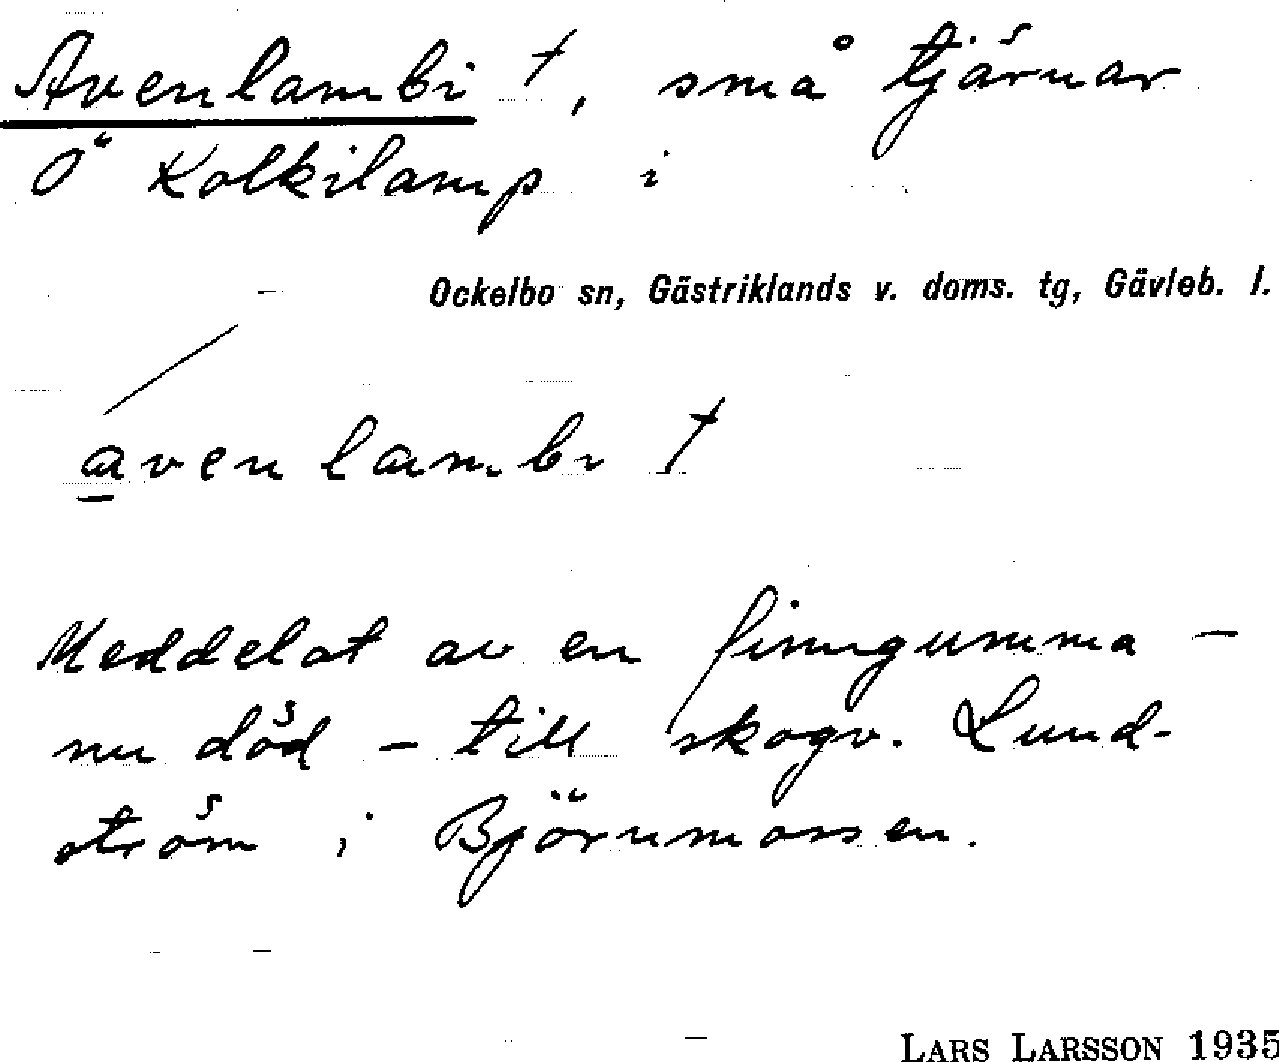 Avenlambi †, små tjärnar
Ö Kolkilamp i
Ockelbo sn, Gästriklands v. doms. tg, Gävleb. l.
avenlambi †
Meddelat av en finngumma –
nu död – till skogv. Lund-
ström i Björnmossen.
LARS LARSSON 1935